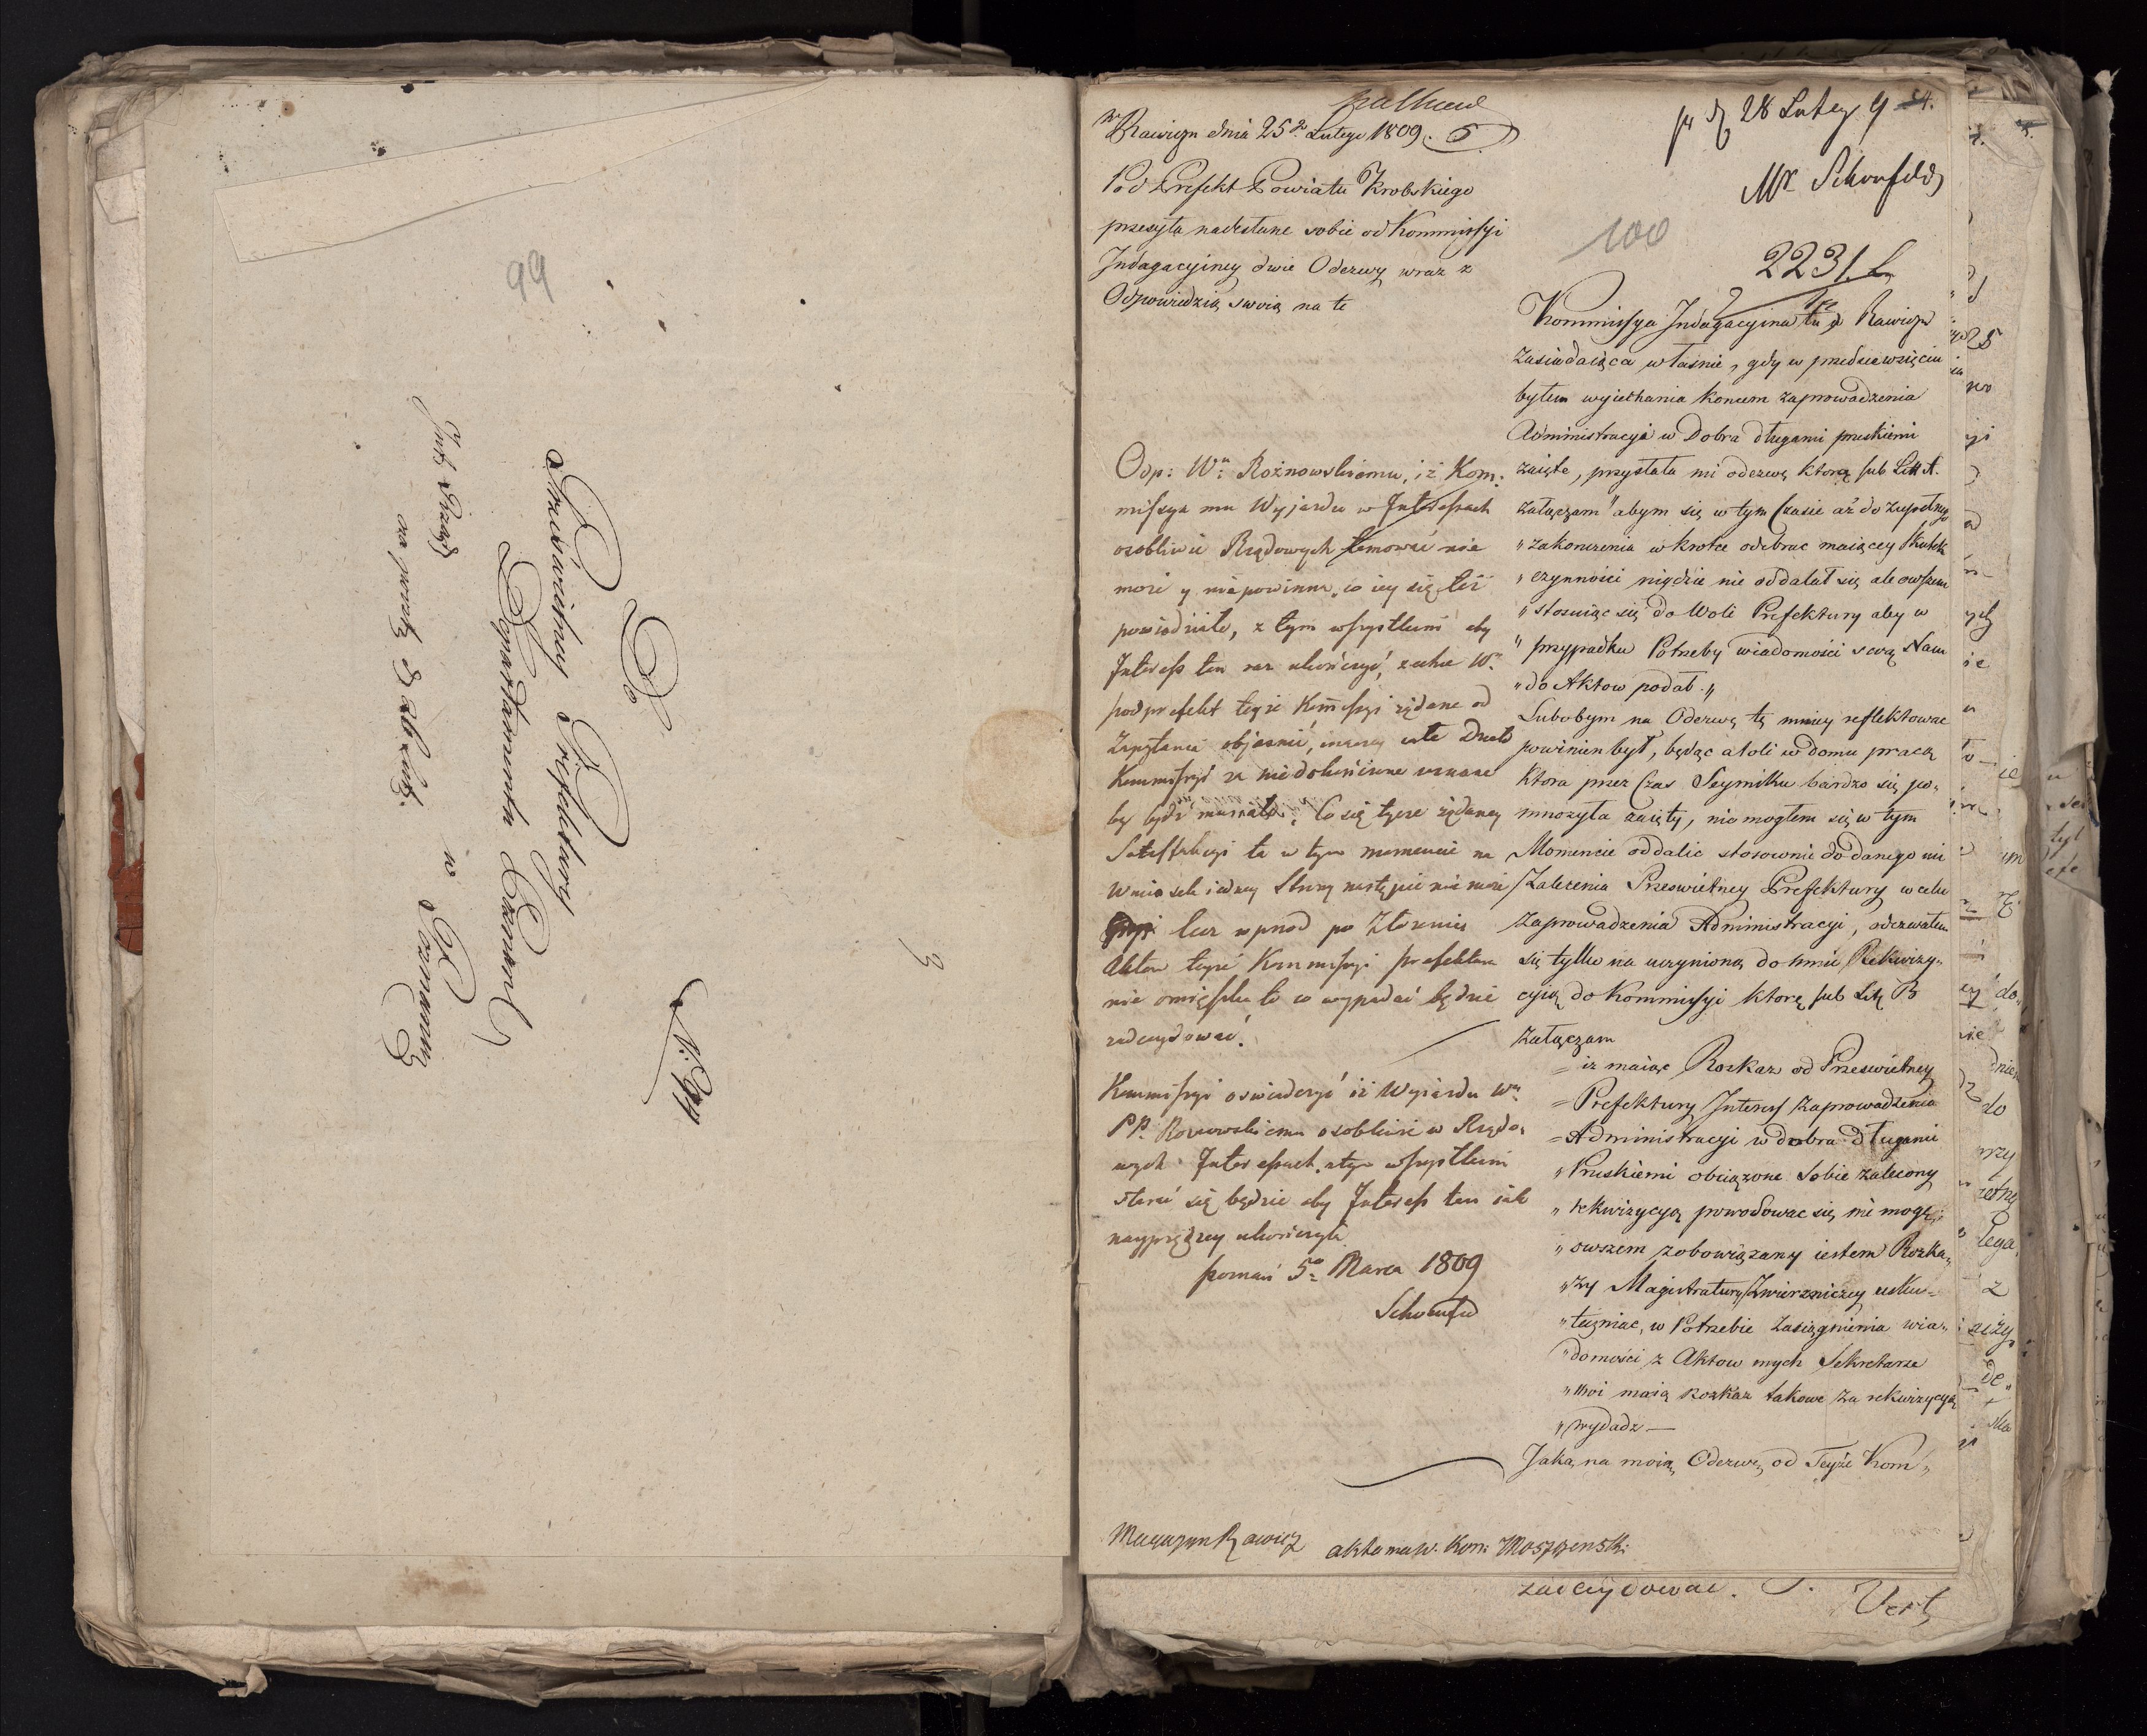 99
Do
Prześwietney Prefektury
Departamentu Poznans:
w Poznaniu
N. 99
3
w Rawiczu dnia 25go Lutego 1809.
Pod Prefekt Powiatu Krobskiego
przesyła nadesłane sobie od Kommissyi
Indagacyiney dwie Odezwy wraz z
Odpowiedzią swoią na te
28 Lutego 9
Mr Schonfeld
100
2231
Odp: Wu: Rożnowskiemu, iż Kom-
missya mu Wyjazdu w Interessach
osobliwie Rządowych tamować nie
może y niepowinna, co iey się też
powiedziało, z tym wszystkim aby
Interess ten raz ukończyć, zechce W.
podprefekt teyże Kommissyi żądane od
Zapytania objasnić, inaczey całe Dzieło
Kommissyi za niedokończone uznane
by bydź musiało. Co się tycze żądaney
Satisfakcyi ta w tym momencie na
Wniosek iedney Strony nastąpić nie może
lecz wprzod po Złożeniu
Aktow teyże Kommissyi prefektura
nie omięszka to co wypadać będzie
zadecydować.
Kommissyi oświadczyć iż Wyiazdu Wu
PP. Rożnowskiemu osobliwie w Rządo-
wych Interessach, a tym wszystkim
starać się będzie aby Interess ten iak
nayprędzey ukończyła
poznań 5o Marca 1809
Schoenfeld
Kommissya Indagacyina tu w Rawiczu
zasiadaiąca właśnie, gdy w przedsiewzięciu
byłem wyiechania koncem zaprowadzenia
Administracyi w Dobra długami pruskiemi
zaięte, przysłała mi odezwę ktorą sub Litt A.
załączam "abym się w tym Czasie aż do zupełnego
" zakonczenia w krotce odebrac maiącey Skutek
" czynności nigdzie nie oddalał się ale owszem
" stosuiąc się do Woli Prefektury aby w
" przypadku Potrzeby wiadomości swą Nam
" do Aktow podał. "
Lubobym na Odezwę tę mniey reflektowac
powinien był, będąc atoli w domu pracą
ktora przez Czas Seymiku bardzo się po-
mnożyła zaięty, nie mogłem się w tym
Momencie oddalic stosownie do danego mi
Zalecenia Przeswietney Prefektury w celu
Zaprowadzenia Administracyi, odezwałem
się tylko na uczynioną do mnie Rekwizy-
cyią do Kommissyi ktorę sub Litt B
załączam
= iz maiąc Rozkaz od Przeswietney
= Prefektury Interess Zaprowadzenia
= Administracyi w dobra długami
" Pruskiemi obciązone Sobie zalecony
" rekwizycyą powodowac się nie mogę;
" owszem zobowiązany iestem Rozka-
" zy Magistratury Zwierzniczey usku-
" teczniac, w Potrzebie Zasiągnienia wia-
" domości z Aktow mych Sekretarze
" moi maią Rozkaz takowe za rekwizycyą
" wydadz —
Jaką na moią Odezwę od Teyże Kom-
akta ma W. Kom: Moszczenski
zadecydowac.
Vert